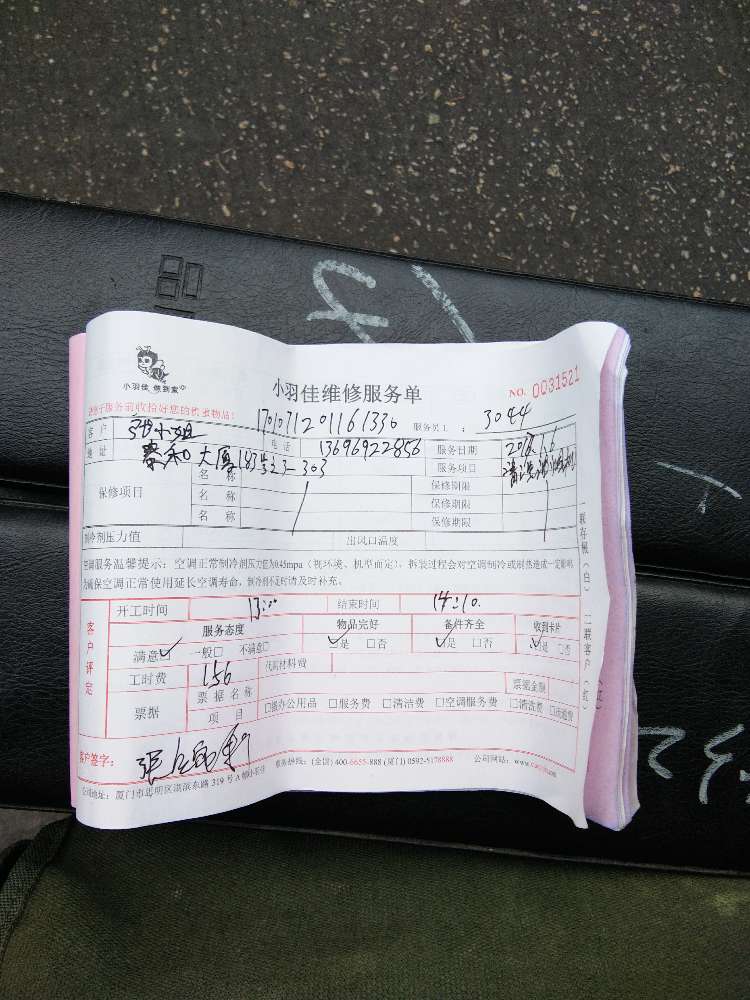 小羽佳 做到家
小羽佳维修服务单
NO. 0031521
服务前收拾好您的贵重物品：
1701071201161330 服务员工： 3044
客户 张小姐 电话 13696922856 服务日期
地址 泰和大厦 303 服务项目
保修项目 名称 保修期限
名称 保修期限
名称 保修期限
制冷剂压力值 出风口温度
空调服务温馨提示：空调正常制冷剂压力值为0.45mpa（视环境、机型而定），拆装过程会对空调制冷或制热造成一定影响
为确保空调正常使用延长空调寿命，制冷剂不足时请及时补充。
客户评定
开工时间 13:00 结束时间 14:10.
服务态度 物品完好 备件齐全 收到卡片
满意☑ 一般□ 不满意□ ☑是 □否 ☑是 □否 ☑是 □否
工时费 156 优耗材料费
票据 票据名称 票据金额
项目 □办公用品 □服务费 □清洁费 □空调服务费 □清洗费
客户签字：
服务热线：(全国) 400-6655-888 (厦门) 0592-5178888 公司网站：
公司地址：厦门市思明区湖滨东路 319 号A
一联存根（白） 二联客户（红）